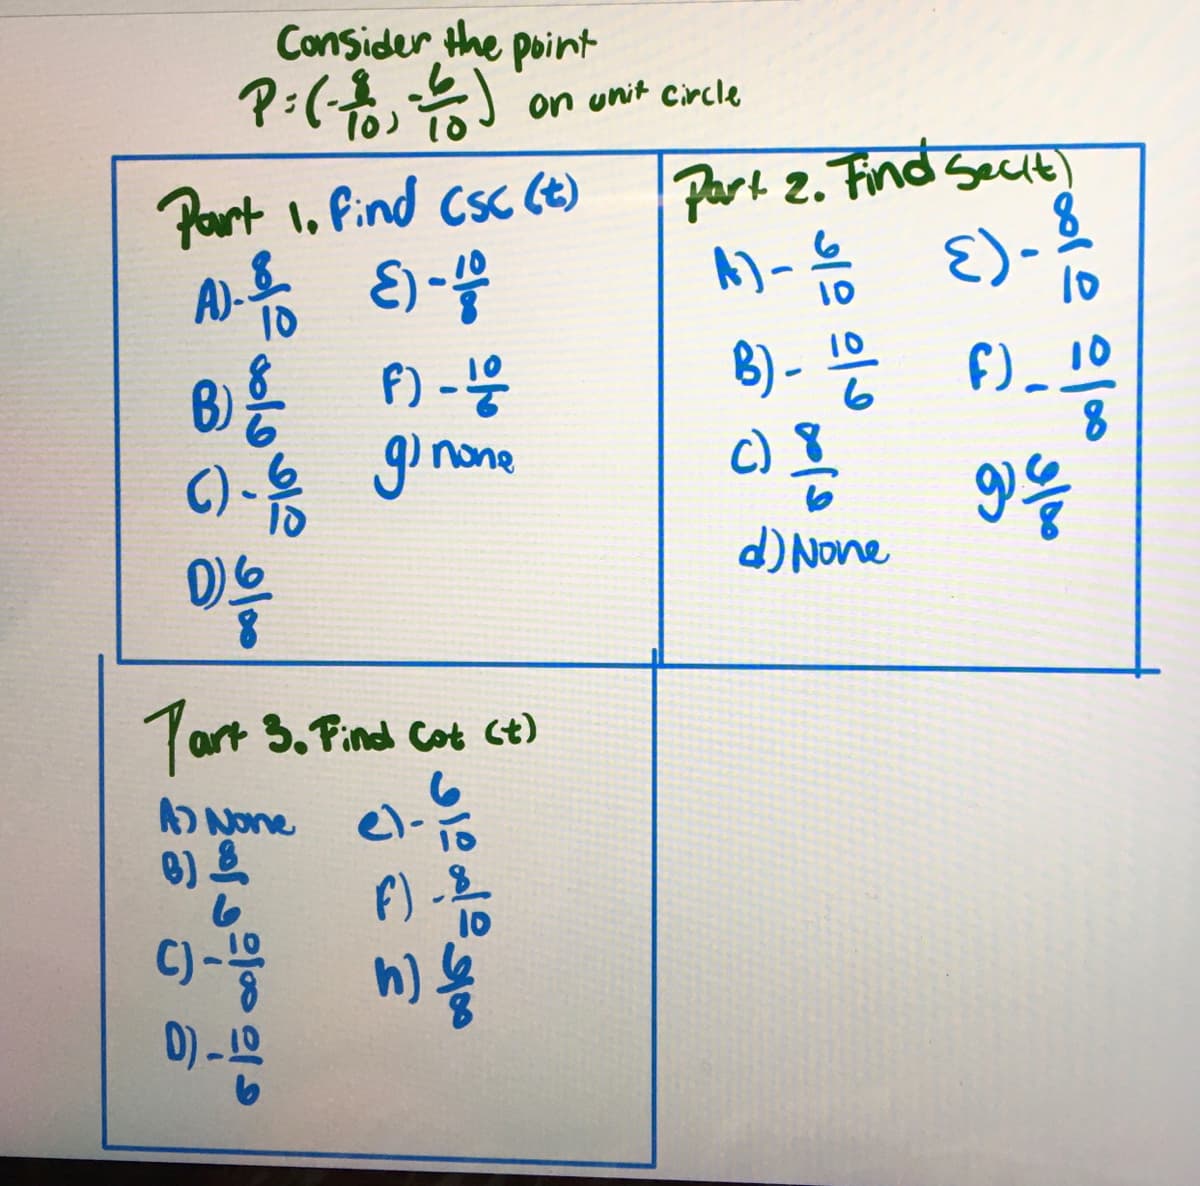 Consider the point
P=(-8/10, -6/10) on unit circle
Part 1. find csc (t)
A) -8/10 E) -10/8
B) 8/6 F) -10/6
C) -6/10 g) none
D) 6/8
Part 2. Find Sec(t)
A) -6/10 E) -8/10
B) -10/6 F) -10/8
C) 8/6 g) 6/8
d) None
Part 3. Find Cot (t)
A) None e) -6/10
B) 8/6 F) -8/10
C) -10/8 h) 6/8
D) -10/6